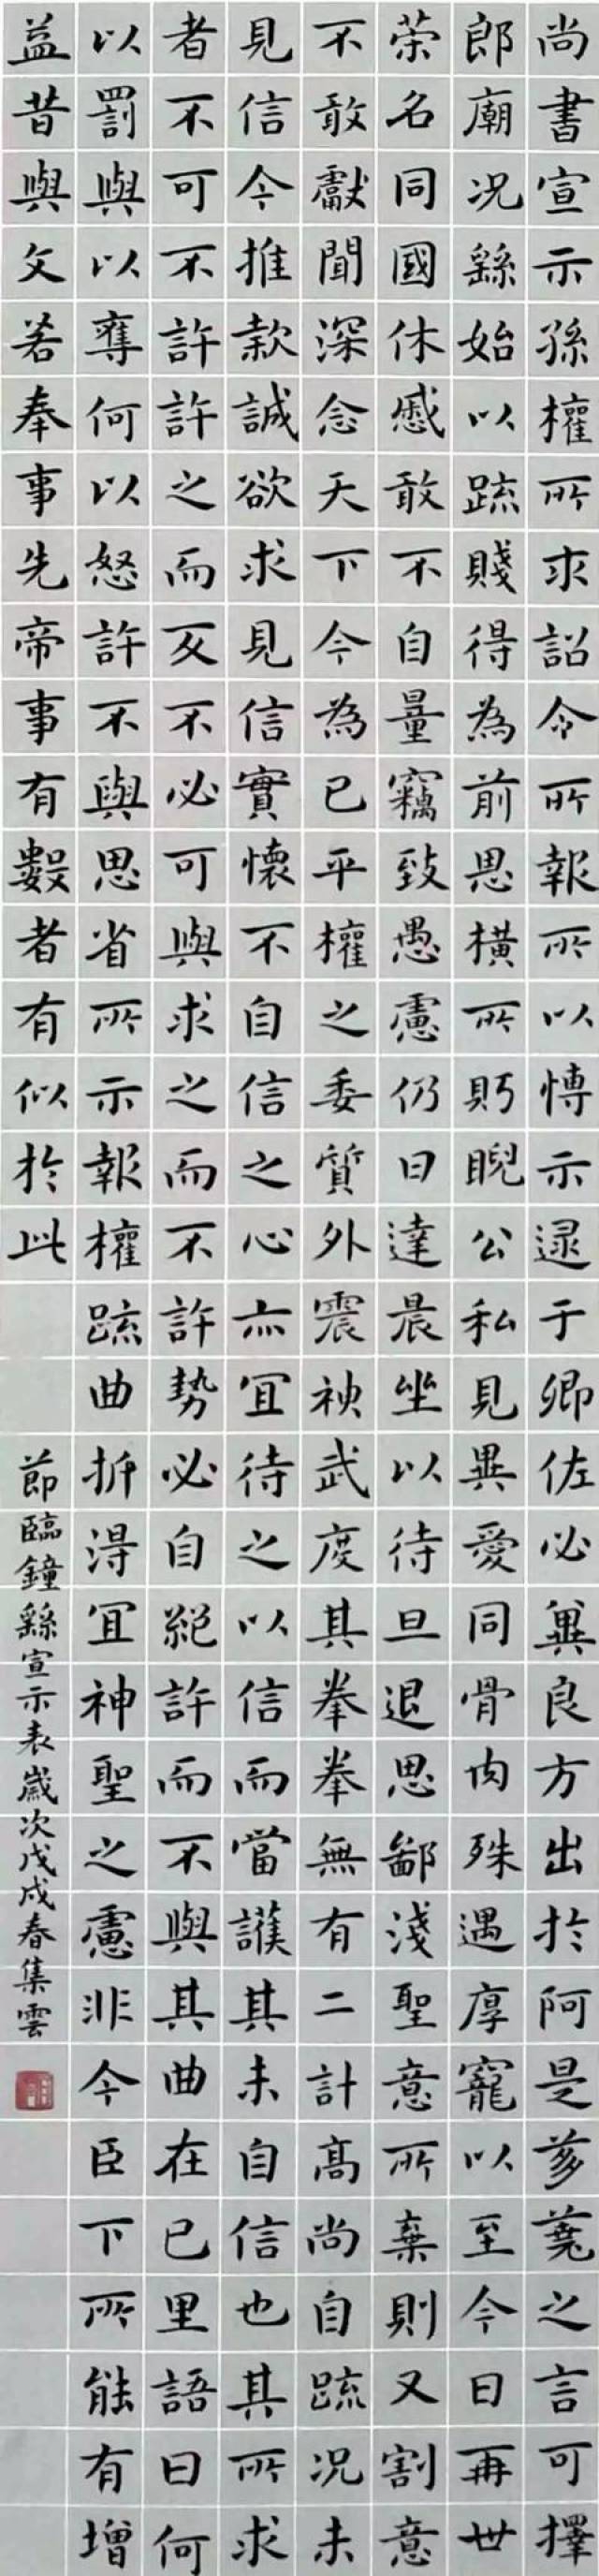 尚書宣示孫權所求詔令所報所以博示逮于卿佐必冀良方出於阿是芻蕘之言可擇
郎廟況繇始以疏賤得為前恩橫所眄睨公私見異愛同骨肉殊遇厚寵以至今日再世
榮名同國休慼敢不自量竊致愚慮仍日達晨坐以待旦退思鄙淺聖意所棄則又割意
不敢獻聞深念天下今為已平權之委質外震神武度其拳拳無有二計高尚自疏況未
見信今推款誠欲求見信實懷不自信之心亦宜待之以信而當護其未自信也其所求
者不可不許許之而反不必可與求之而不許勢必自絕許而不與其曲在己里語曰何
以罰與以奪何以怒許不與思省所示報權疏曲折得宜神聖之慮非今臣下所能有增
益昔與文若奉事先帝事有數者有似於此
節臨鐘繇宣示表歲次戊戌春集雲